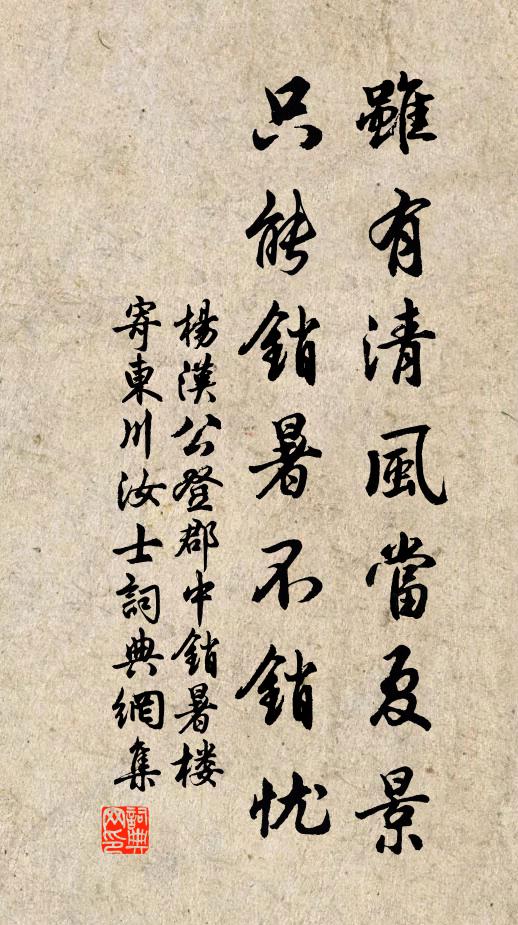 雖有清風當夏景
只能銷暑不銷忧
楊漢公登郡中銷暑楼
寄東川汝士詞典網集
詞典网印